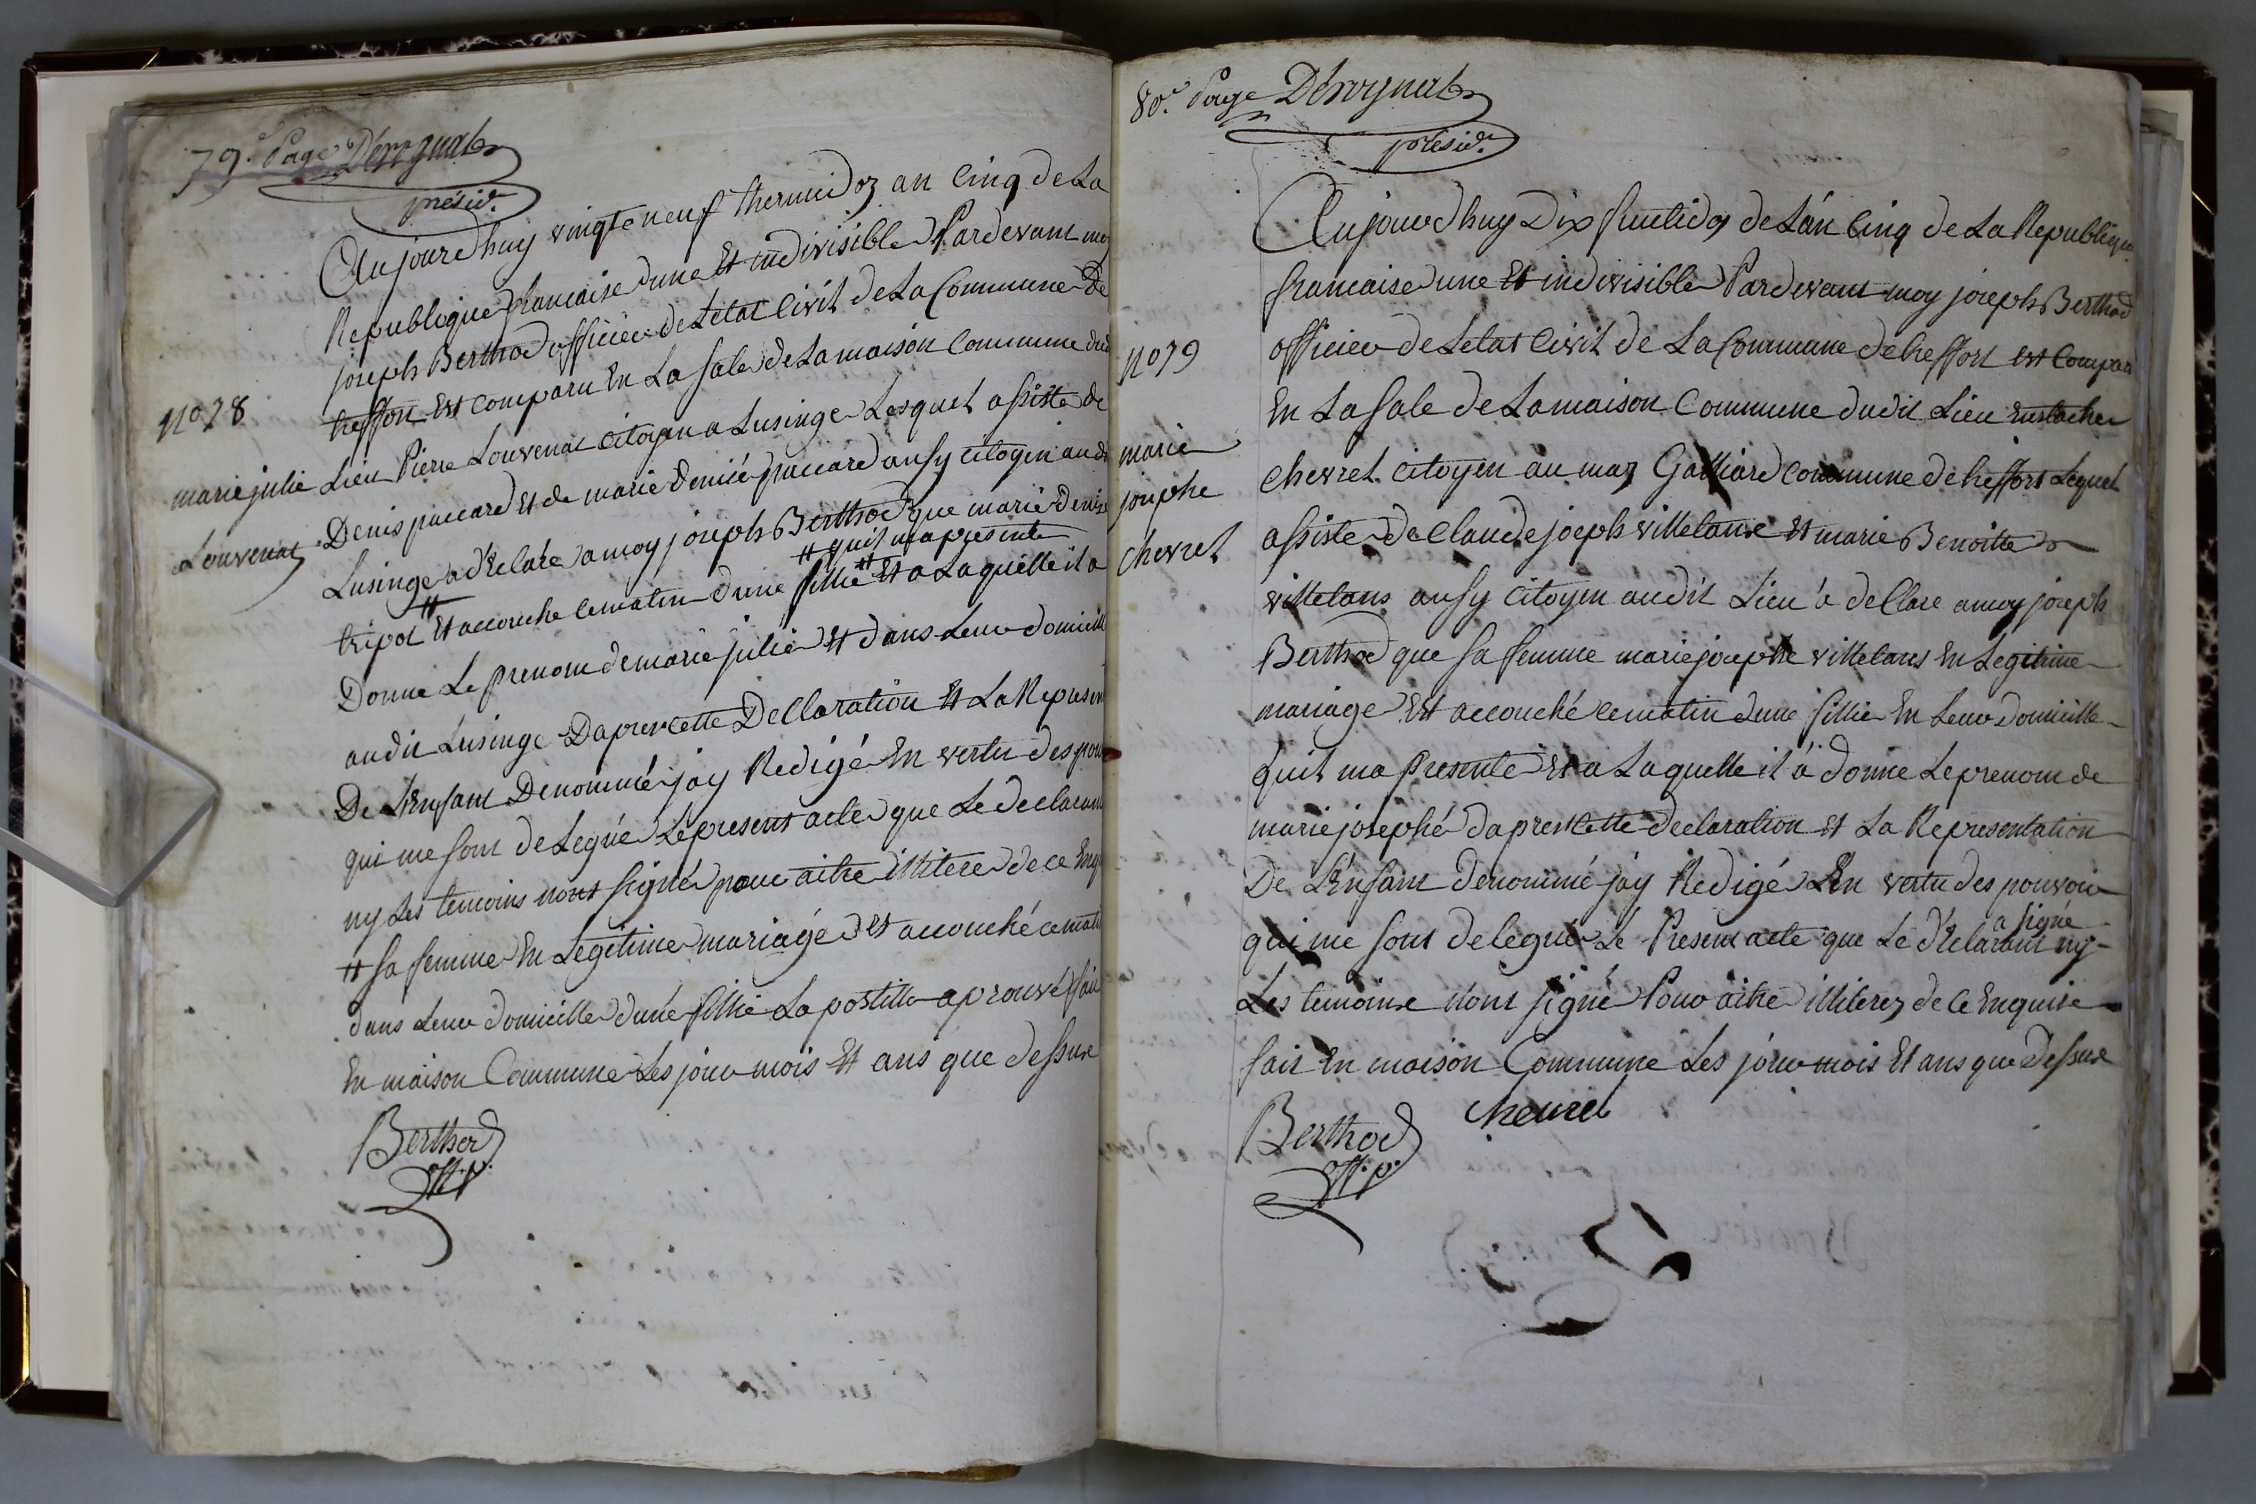 79.e Page Dérognat
présid.
Aujourdhuy vingte neuf thermidor an Cinq de La
Republique francaise une Et indivisible Pardevant moy
joseph Berthod officier de Letat Civil de La Commune de
treffort Est comparu En La Sale de La maison Commune dud
No 78
Lieu Pierre Louvenat Citoyen a Lusinge Lesquel assiste de
marie julie
Louvenat
Denis paccard Et de marie denise paccard ausy Citoyen audit
Lusinge a declare a moy joseph Berthod que marie denise
# quil ma presente
tripoz # Et accouche Cematin dune fillie # Et a Laquelle il a
Donne Le prenom de marie julie Et dans Leur domicille
audit Lusinge Dapres cette Declaration Et La Represen
De LEnfant Denommé jay Redigé En vertu des pouv
qui me sont deLegué Le present acte que Le declarant
ny Les temoins nont signé pour aitre illitere de ce Enq
# sa femme En Legitime mariage Et accouché ce matin
dans Leur domicille dune fillie La postille aprouvé fait
En maison Commune Les jour mois Et ans que dessus
Berthod
off. p.
80.e Page Dérognat
présid.
Aujourdhuy Dix fructidor de Lan Cinq de La Republique
francaise une Et indivisible Pardevant moy joseph Berthod
officier de Letat Civil de La Commune de treffort est Comparu
No 79
En La Sale de La maison Commune dudit Lieu Eustache
marie
josephe
Chevret
Chevret Citoyen au mas Galliard commune de treffort Lequel
assiste de Claude joseph villetans Et marie Benoitte
villetans ausy Citoyen audit Lieu a declare a moy joseph
Berthod que sa femme marie josephe villetans En Legitime
mariage Est accouché cematin dune fillie En Leur domicille
quil ma presente Et a Laquelle il a donne Le prenom de
marie josephé dapres cette declaration Et La Representation
De LEnfant denommé jay Redigé En vertu des pouvoir
a signe
qui me sont delegué Le Present acte que Le declarant ny
Les temoins nont signé Pour aitre illiterez de ce Enquise
fait En maison Commune Les jour mois Et ans que Dessus
Berthod
off. p.
Chevret